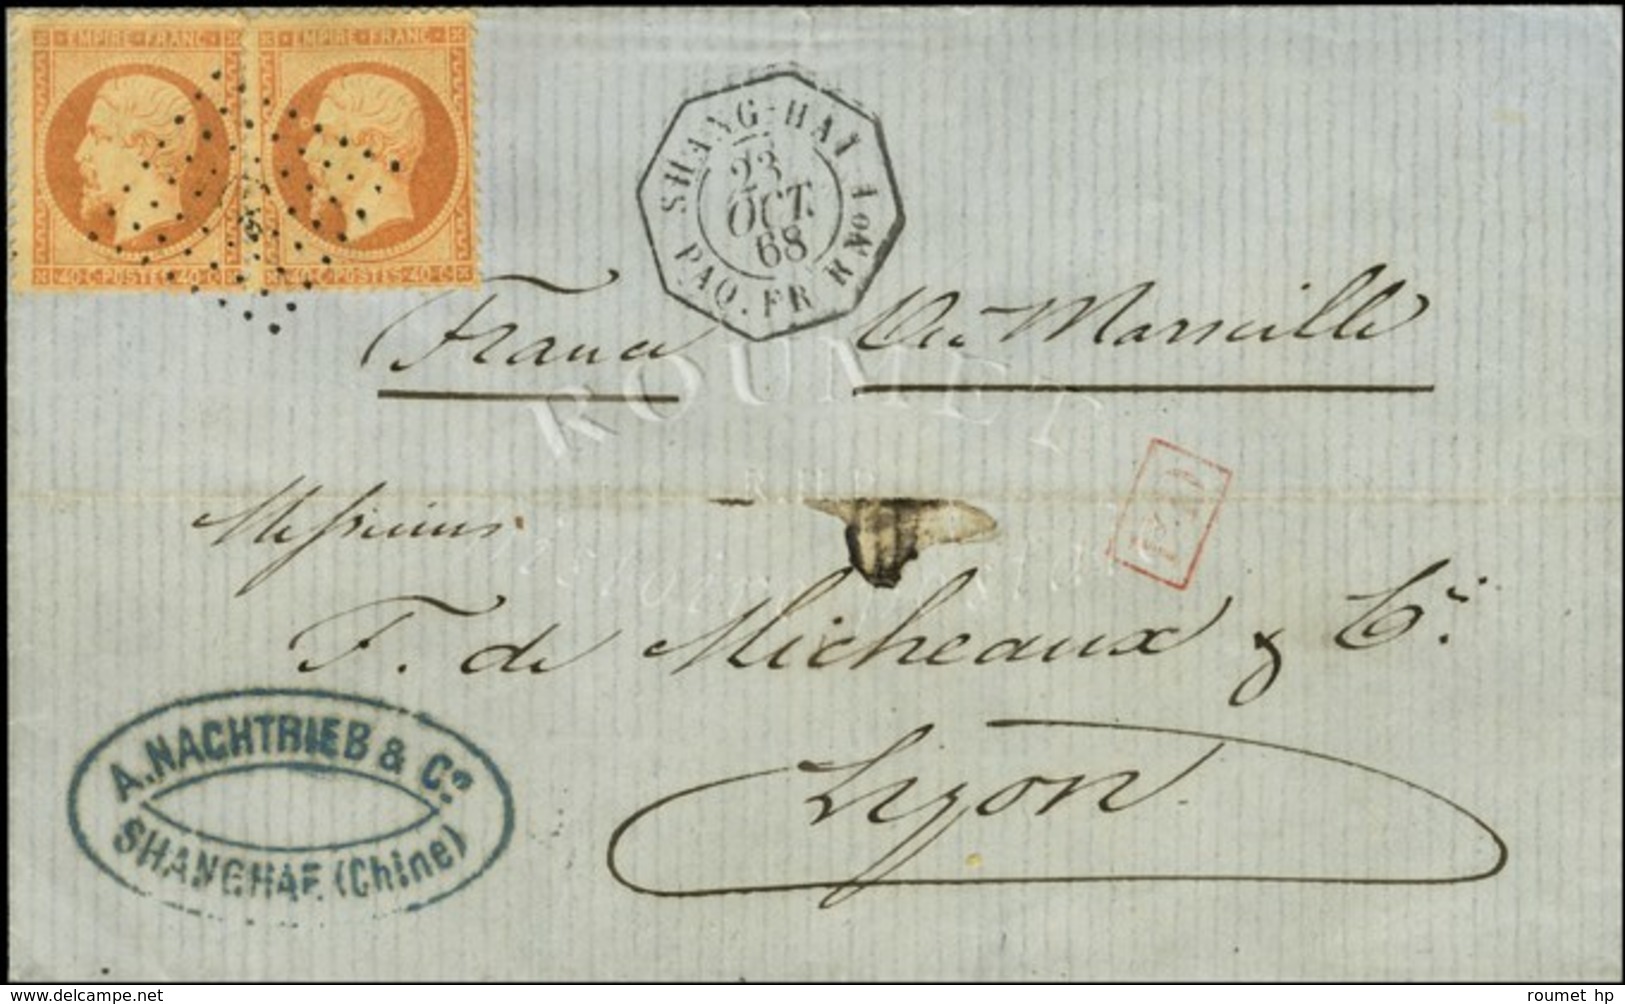 EMPIRE · FRANC · EMPIRE · FRANC
40·C·POSTES·40·C· 40·C·POSTES·40·C·
SHANG-HAI
23
OCT.
68
PAQ. FR. K No 1
France Via Marseille
ROUMET
P.D.
Messieurs
F. de Micheaux & Cie
Lyon
A. NACHTRIEB & Co.
SHANGHAE (Chine)
delcampe.net
roumet_hp